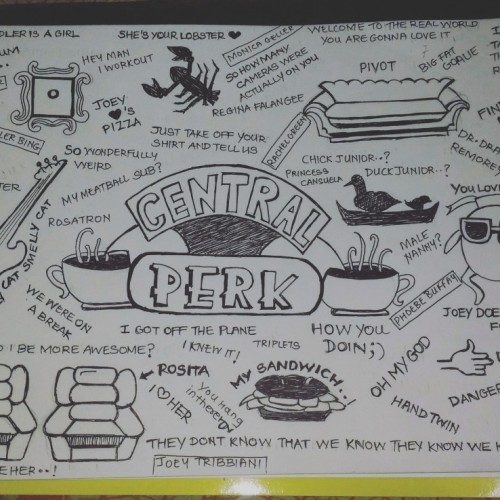 DLER IS A GIRL
SHE'S YOUR LOBSTER
WELCOME TO THE REAL WORLD
YOU ARE GONNA LOVE IT
UM
HEY MAN
I WORKOUT
MONICA GELLER
SO HOW MANY
CAMERAS WERE
ACTUALLY ON YOU
REGINA FALANGEE
PIVOT
BIG FAT
GOALIE
JOEY
'S
PIZZA
JUST TAKE OFF YOUR
SHIRT AND TELL US
RACHEL GREEN
FIN
DR. DRA
REMORE
LER BING
SO WONDERFULLY
WEIRD
CHICK JUNIOR..?
PRINCESS
CANSUELA
DUCK JUNIOR..?
YOU LOV
TER
MY MEATBALL SUB?
ROSATRON
CAT SMELLY CAT
CENTRAL
PERK
MALE
NANNY?
PHOEBE BUFFAY
WE WERE ON
A BREAK
I GOT OFF THE PLANE
HOW YOU
DOIN;)
JOEY DOE
FO
D I BE MORE AWESOME?
I KNEW IT!
TRIPLETS
OH MY GOD
ROSITA
I
HER
YOU HANG
IN THERE
MY SANDWICH...
HAND TWIN
DANGER
THEY DONT KNOW THAT WE KNOW THEY KNOW WE K
JOEY TRIBBIANI
E HER..!